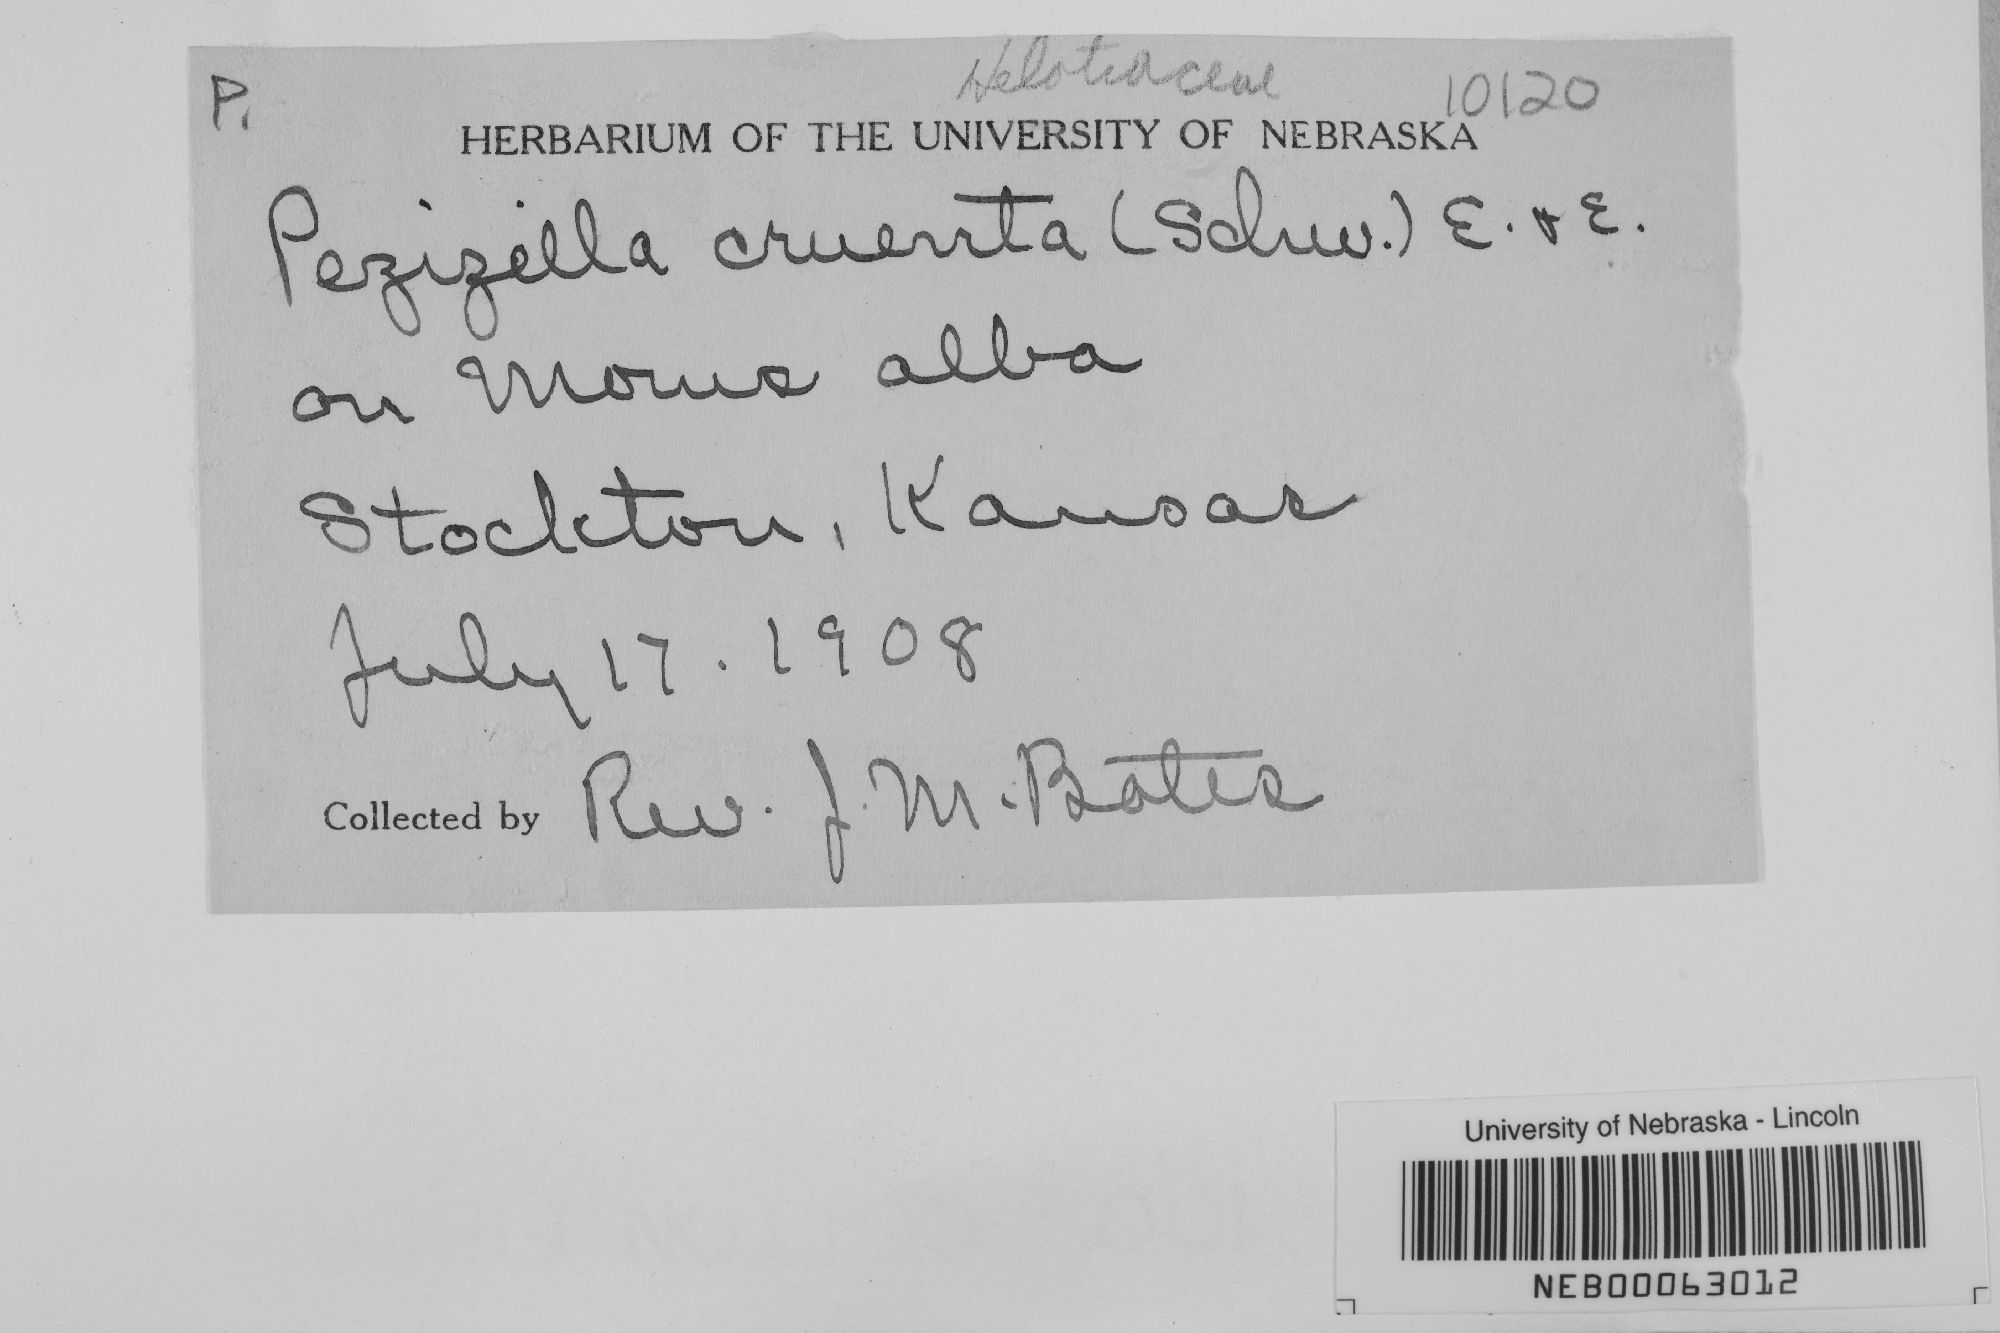 P.
Helotiaceae
10120
HERBARIUM OF THE UNIVERSITY OF NEBRASKA
Pezizella cruenta (Schw.) E. & E.
on Morus alba
Stockton, Kansas
July 17. 1908
Collected by Rev. J. M. Bates
University of Nebraska - Lincoln
NEB00063012